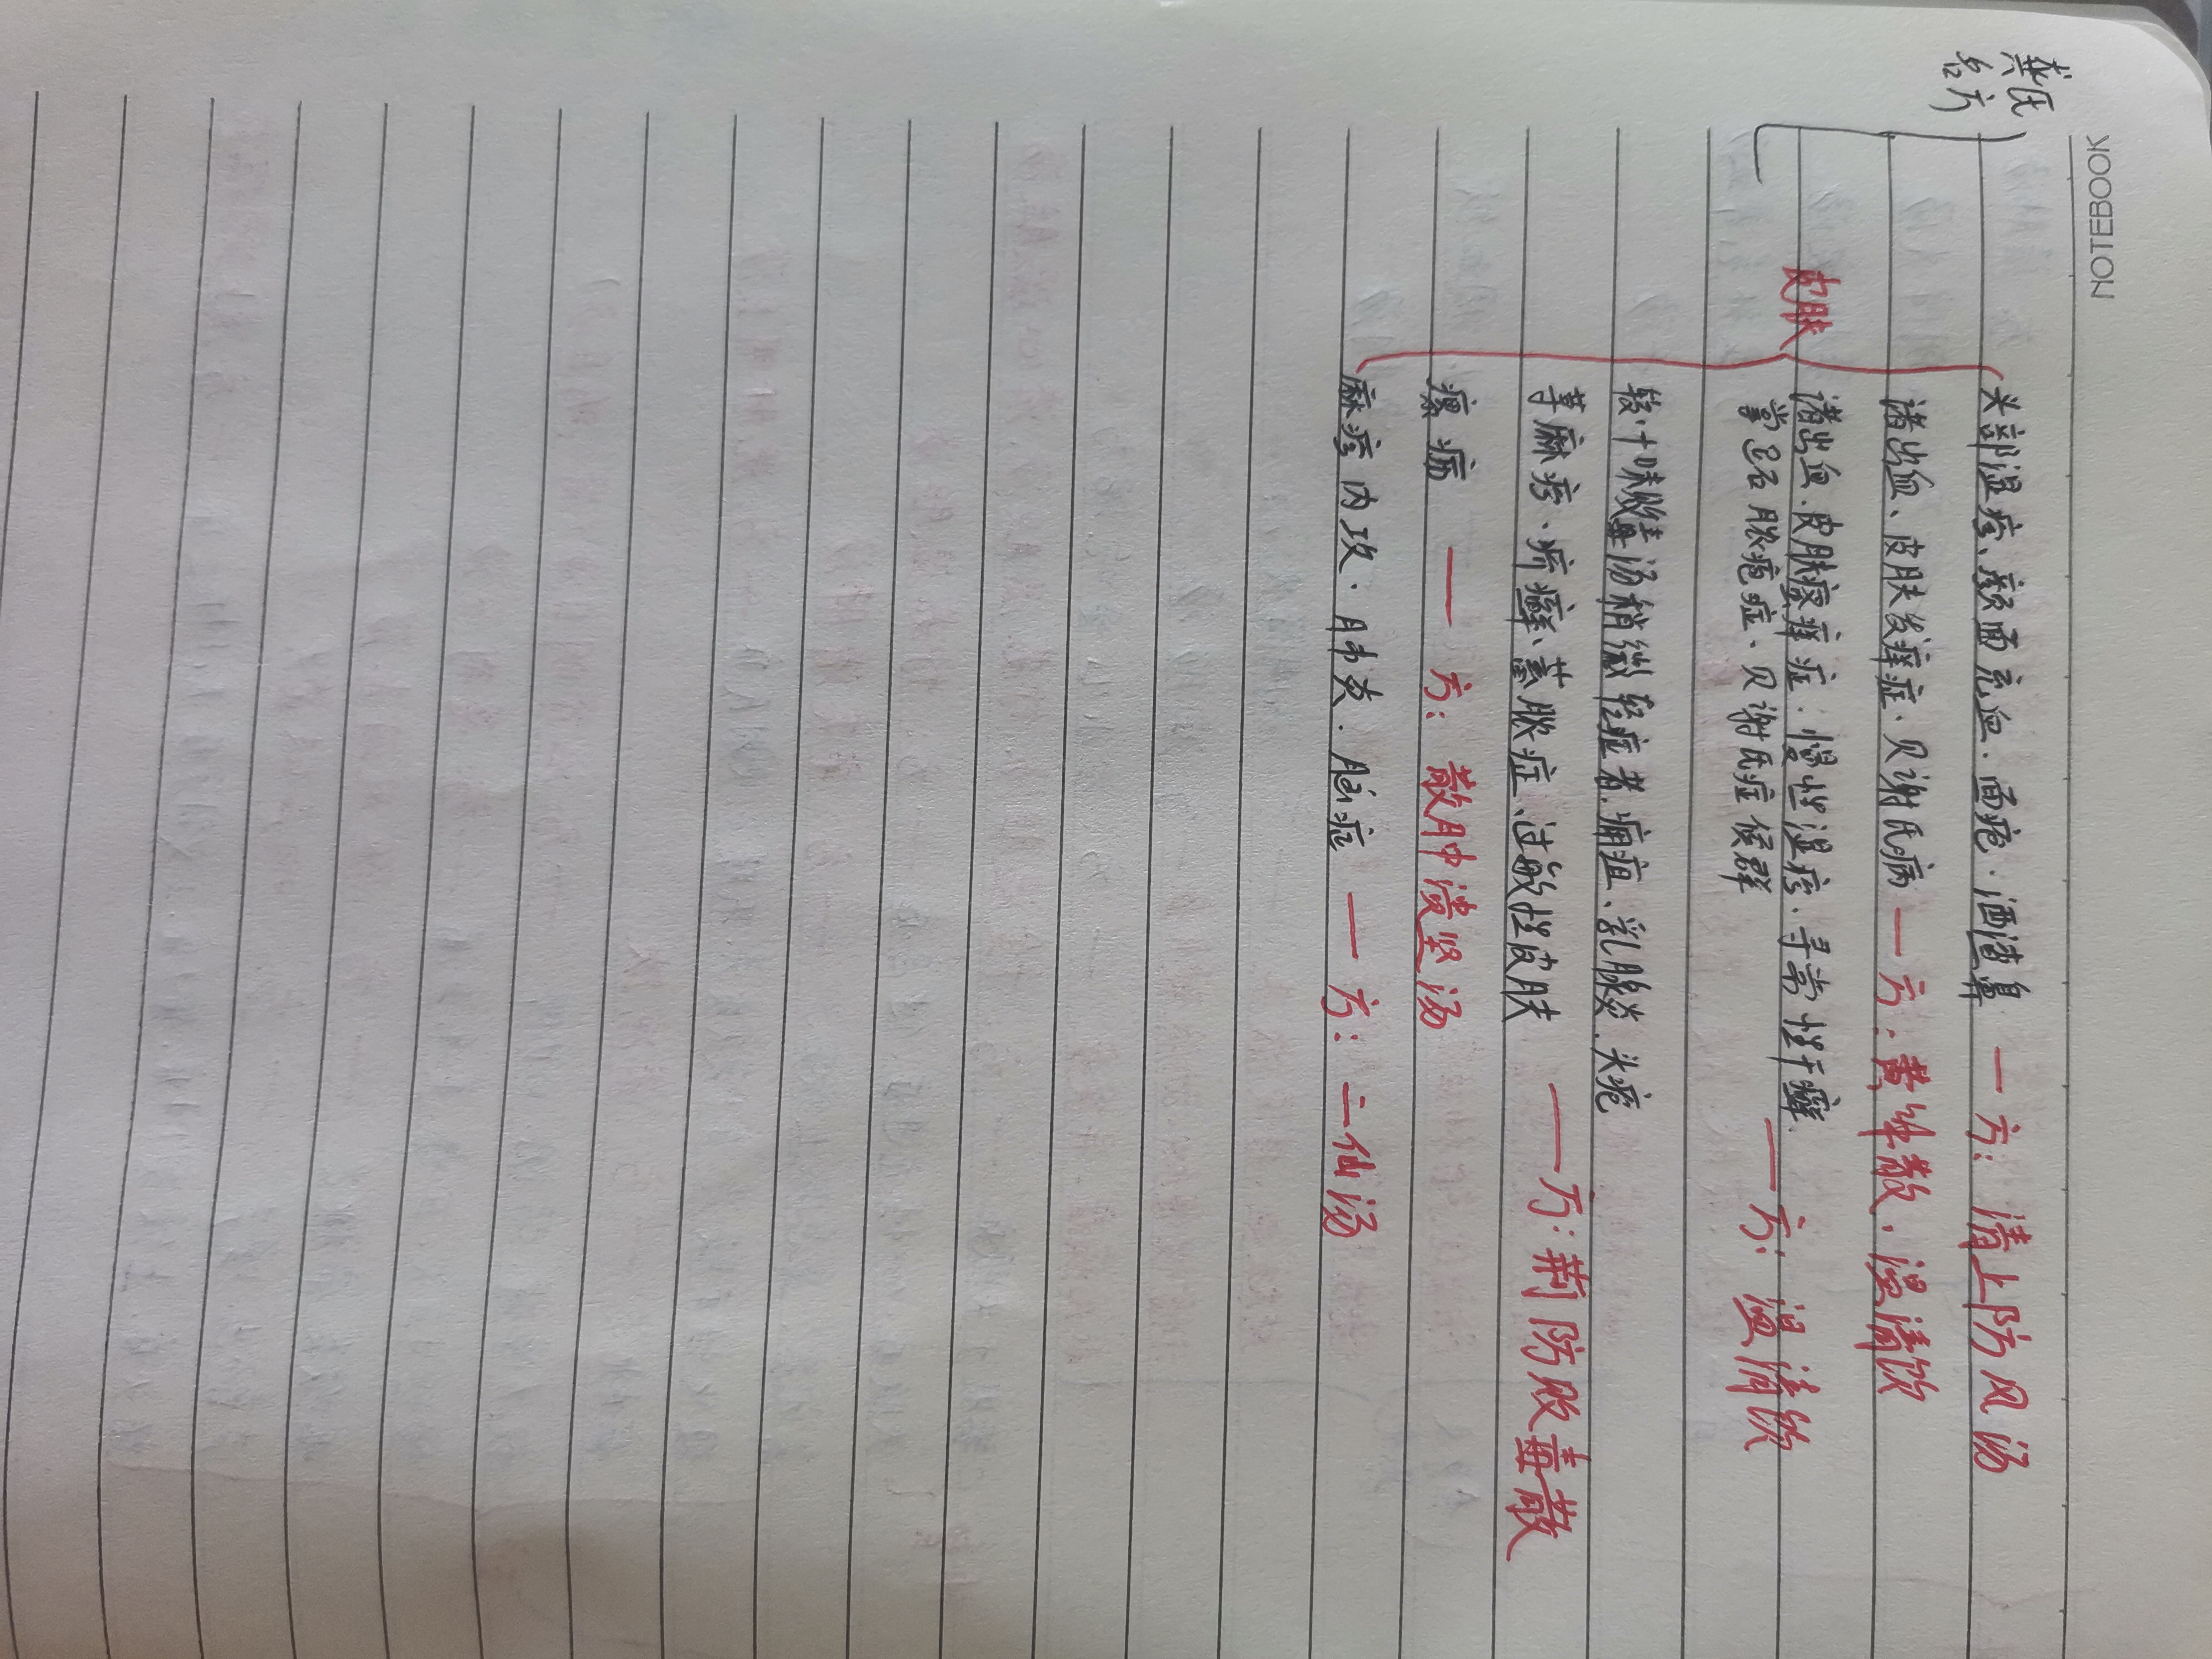 NOTEBOOK
龚氏
名方
皮肤
头部湿疹、颜面充血、面疱、酒渣鼻 — 方：清上防风汤
诸出血、皮肤发痒症、贝谢氏病 — 方：黄芩散、温清饮
诸出血、皮肤瘙痒症、慢性湿疹、寻常性干癣、
掌跖脓疱症、贝谢氏症候群 — 方：温清饮
较十味败毒汤稍微轻症者、痈疽、乳腺炎、头疮
荨麻疹、疥癣、蓄脓症、过敏性皮肤 — 方：荆防败毒散
瘰疬 — 方：散肿溃坚汤
麻疹内攻、肺炎、脑症 — 方：二仙汤